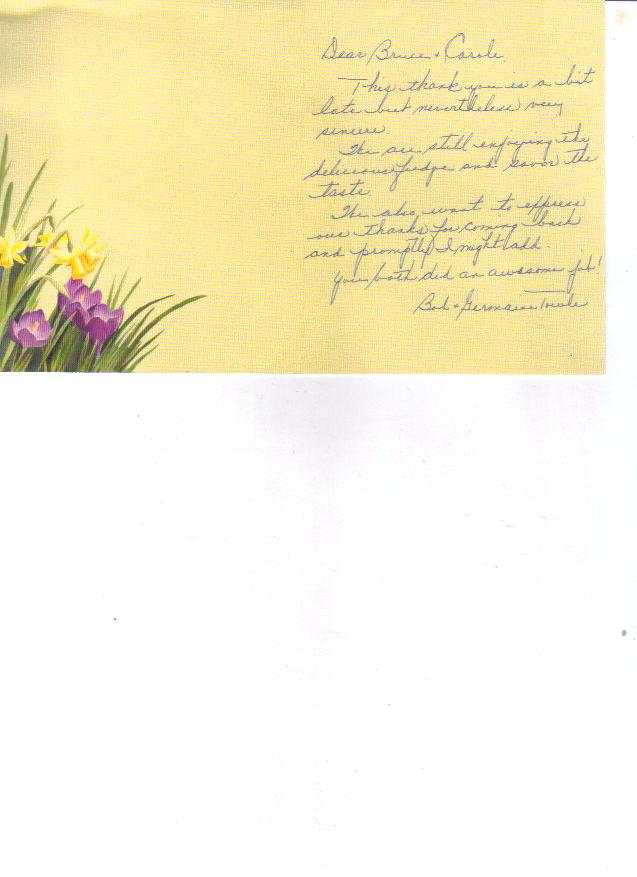 Dear Bruce + Carole,
This thank you is a bit
late but nevertheless very
sincere.
We are still enjoying the
delicious fudge and savor the
taste.
We also want to express
our thanks for coming back
and promptly I might add.
You both did an awesome job!
Bob + Germaine